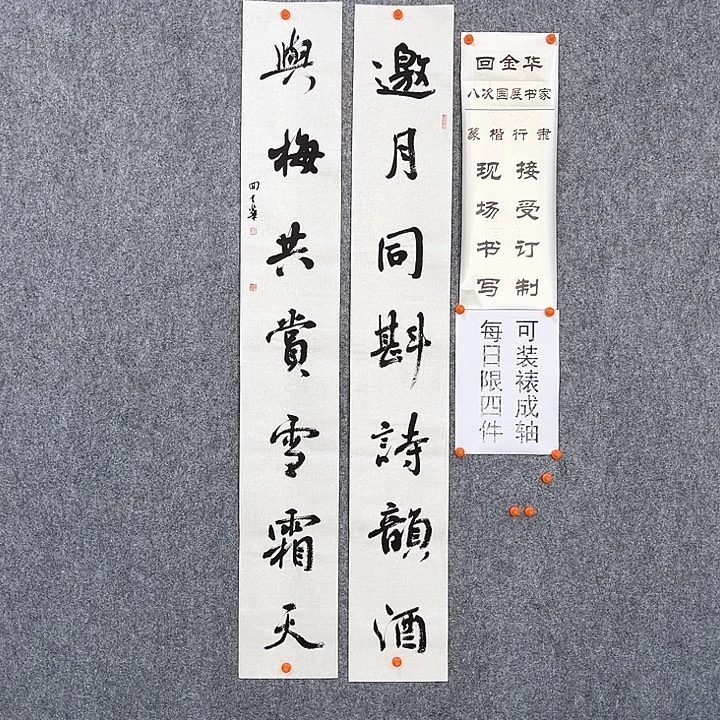 邀月同斟詩韻酒
與梅共賞雪霜天
回金華
回金华
八次国展书家
篆楷行隶
接受订制
现场书写
可装裱成轴
每日限四件